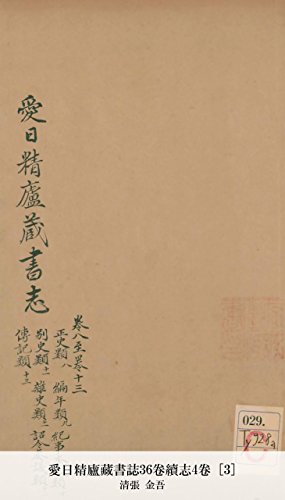 愛日精廬藏書志
卷八至卷十三
正史類八 編年類九 紀事
別史類十一 雜史類十二 詔令
傳記類十三
029.
愛日精廬藏書誌36卷續志4卷［3］
清張 金吾